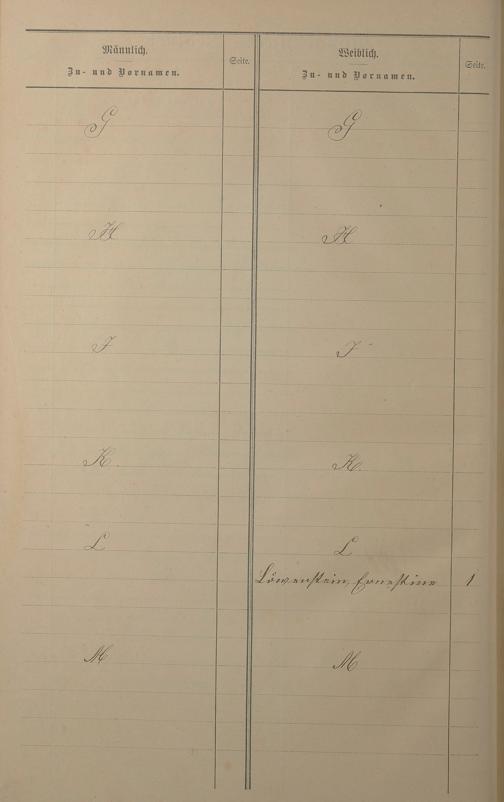 Männlich.
Zu- und Vornamen.
Seite.
G
H
J
K.
L
M
Weiblich.
Zu- und Vornamen.
Seite.
G
H
J
K.
L
Löwenstein, Ernestine 1
M